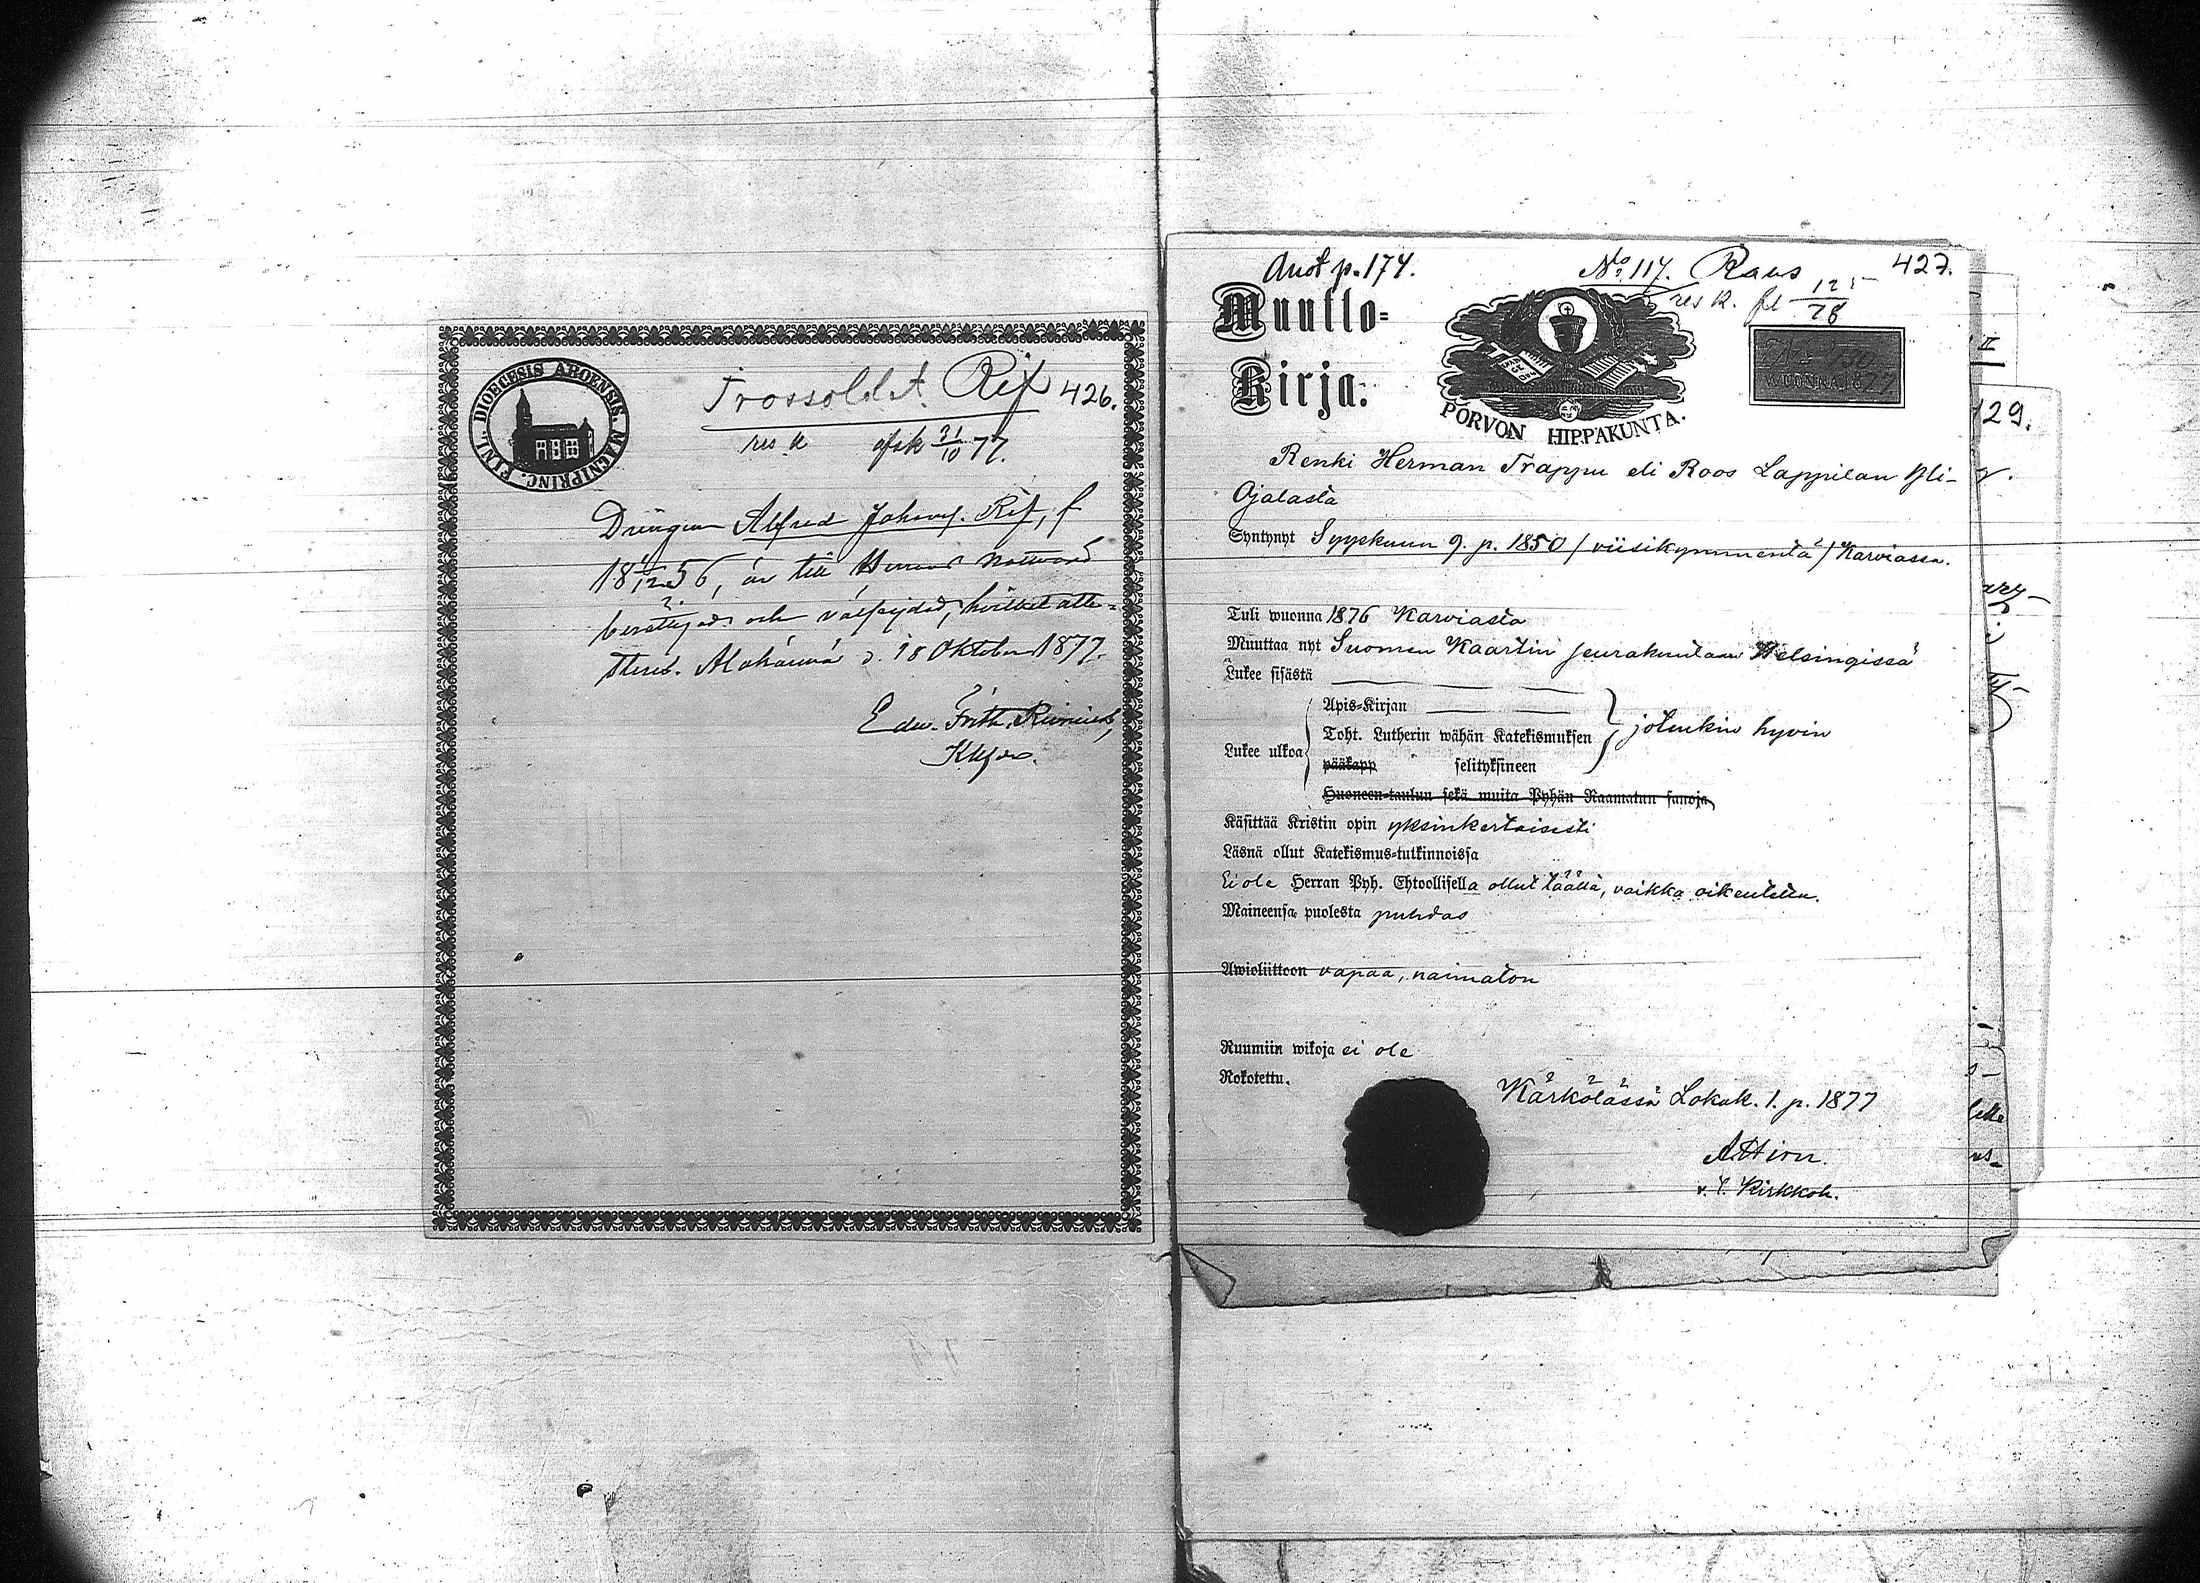 DIOECESIS ABOENSIS. MAGNI PRINC. FINL.
Trossoldat. Rif 426.
res. k afsk 31/10 77.
Drängen Alfred Johans. Rif, f
18 1/12 56, är till Herrens Nattvard
berättigad och välfrejdad, hvilket atte-
steras. Alahärmä d. 18 Oktober 1877.
Edw. Frith.
Khde.
Anot p. 174.
No 117. Raus 427.
res k. fel 125/78
Muutto-
Kirja.
PORVON HIPPAKUNTA.
No 130
WUONNA 1877
Renki Herman Trappu eli Roos Lappilan Yli-
Ojalasta
Syntynyt Syyskuun 9. p. 1850 / viisikymmentä / Karviassa.
Tuli wuonna 1876 Karviasta
Muuttaa nyt Suomen Kaartin seurakuntaan Helsingissä
Lukee sisästä
Apis-Kirjan
Toht. Lutherin wähän Katekismuksen
Lukee ulkoa
jotenkin hyvin
pääkapp " selityksineen
Huoneen-taulun sekä muita Pyhän Raamatun sanoja
Käsittää Kristin opin yksinkertaisesti
Läsnä ollut Katekismus-tutkinnoissa
Ei ole Herran Pyh. Ehtoollisella ollut täällä, vaikka oikeutettu.
Maineensa puolesta puhdas
Awioliittoon vapaa, naimaton
Ruumiin wikoja ei ole
Rokotettu.
Kärkölässä Lokak. 1. p. 1877
A Hirn.
v. t. Kirkkoh.
129.